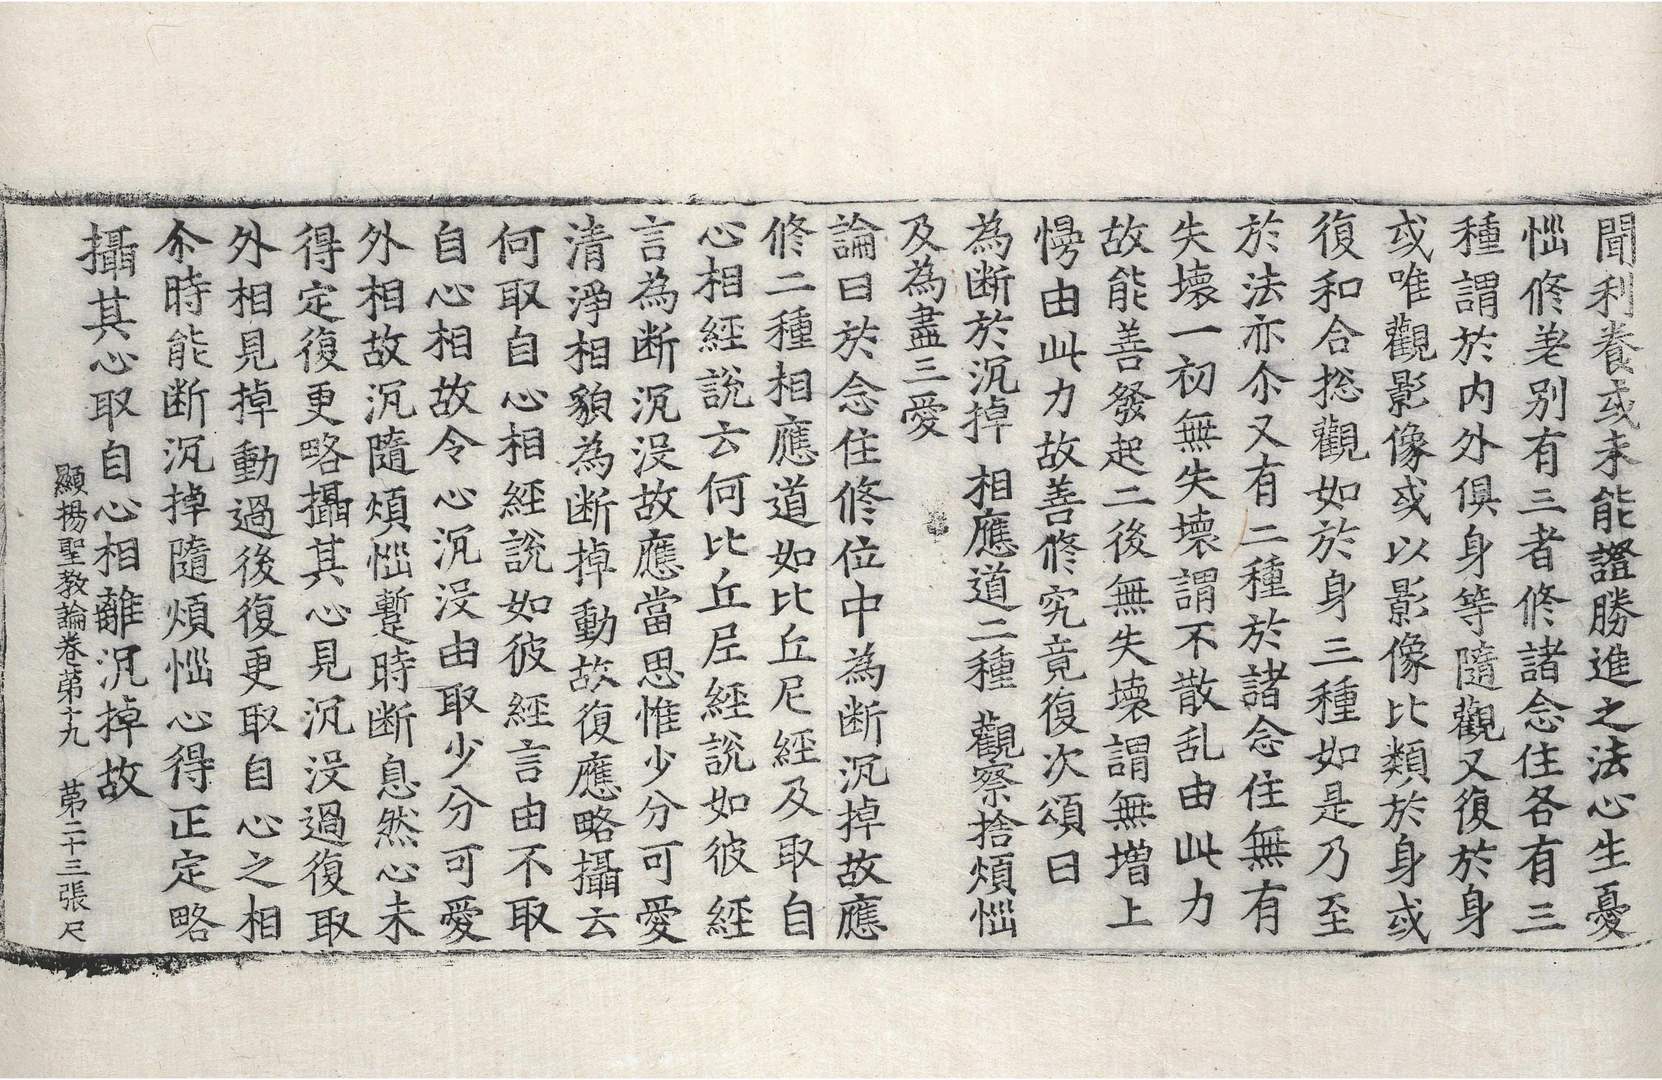 聞利養或未能證勝進之法心生憂
惱修差別有三者修諸念住各有三
種謂於内外俱身等隨觀又復於身
或唯觀影像或以影像比類於身或
復和合揔觀如於身三種如是乃至
於法亦尒又有二種於諸念住無有
失壊一初無失壊謂不散乱由此力
故能善發起二後無失壊謂無増上
慢由此力故善修究竟復次頌曰
為断於沉掉 相應道二種 觀察捨煩惱
及為盡三愛
論曰於念住修位中為断沉掉故應
修二種相應道如比丘尼經及取自
心相經說云何比丘尼經說如彼經
言為断沉没故應當思惟少分可愛
清淨相貌為断掉動故復應略攝云
何取自心相經說如彼經言由不取
自心相故令心沉没由取少分可愛
外相故沉隨煩惱蹔時断息然心未
得定復更略攝其心見沉没過復取
外相見掉動過後復更取自心之相
尒時能断沉掉隨煩惱心得正定略
攝其心取自心相離沉掉故
顯揚聖教論卷苐十九 苐二十三張 尺